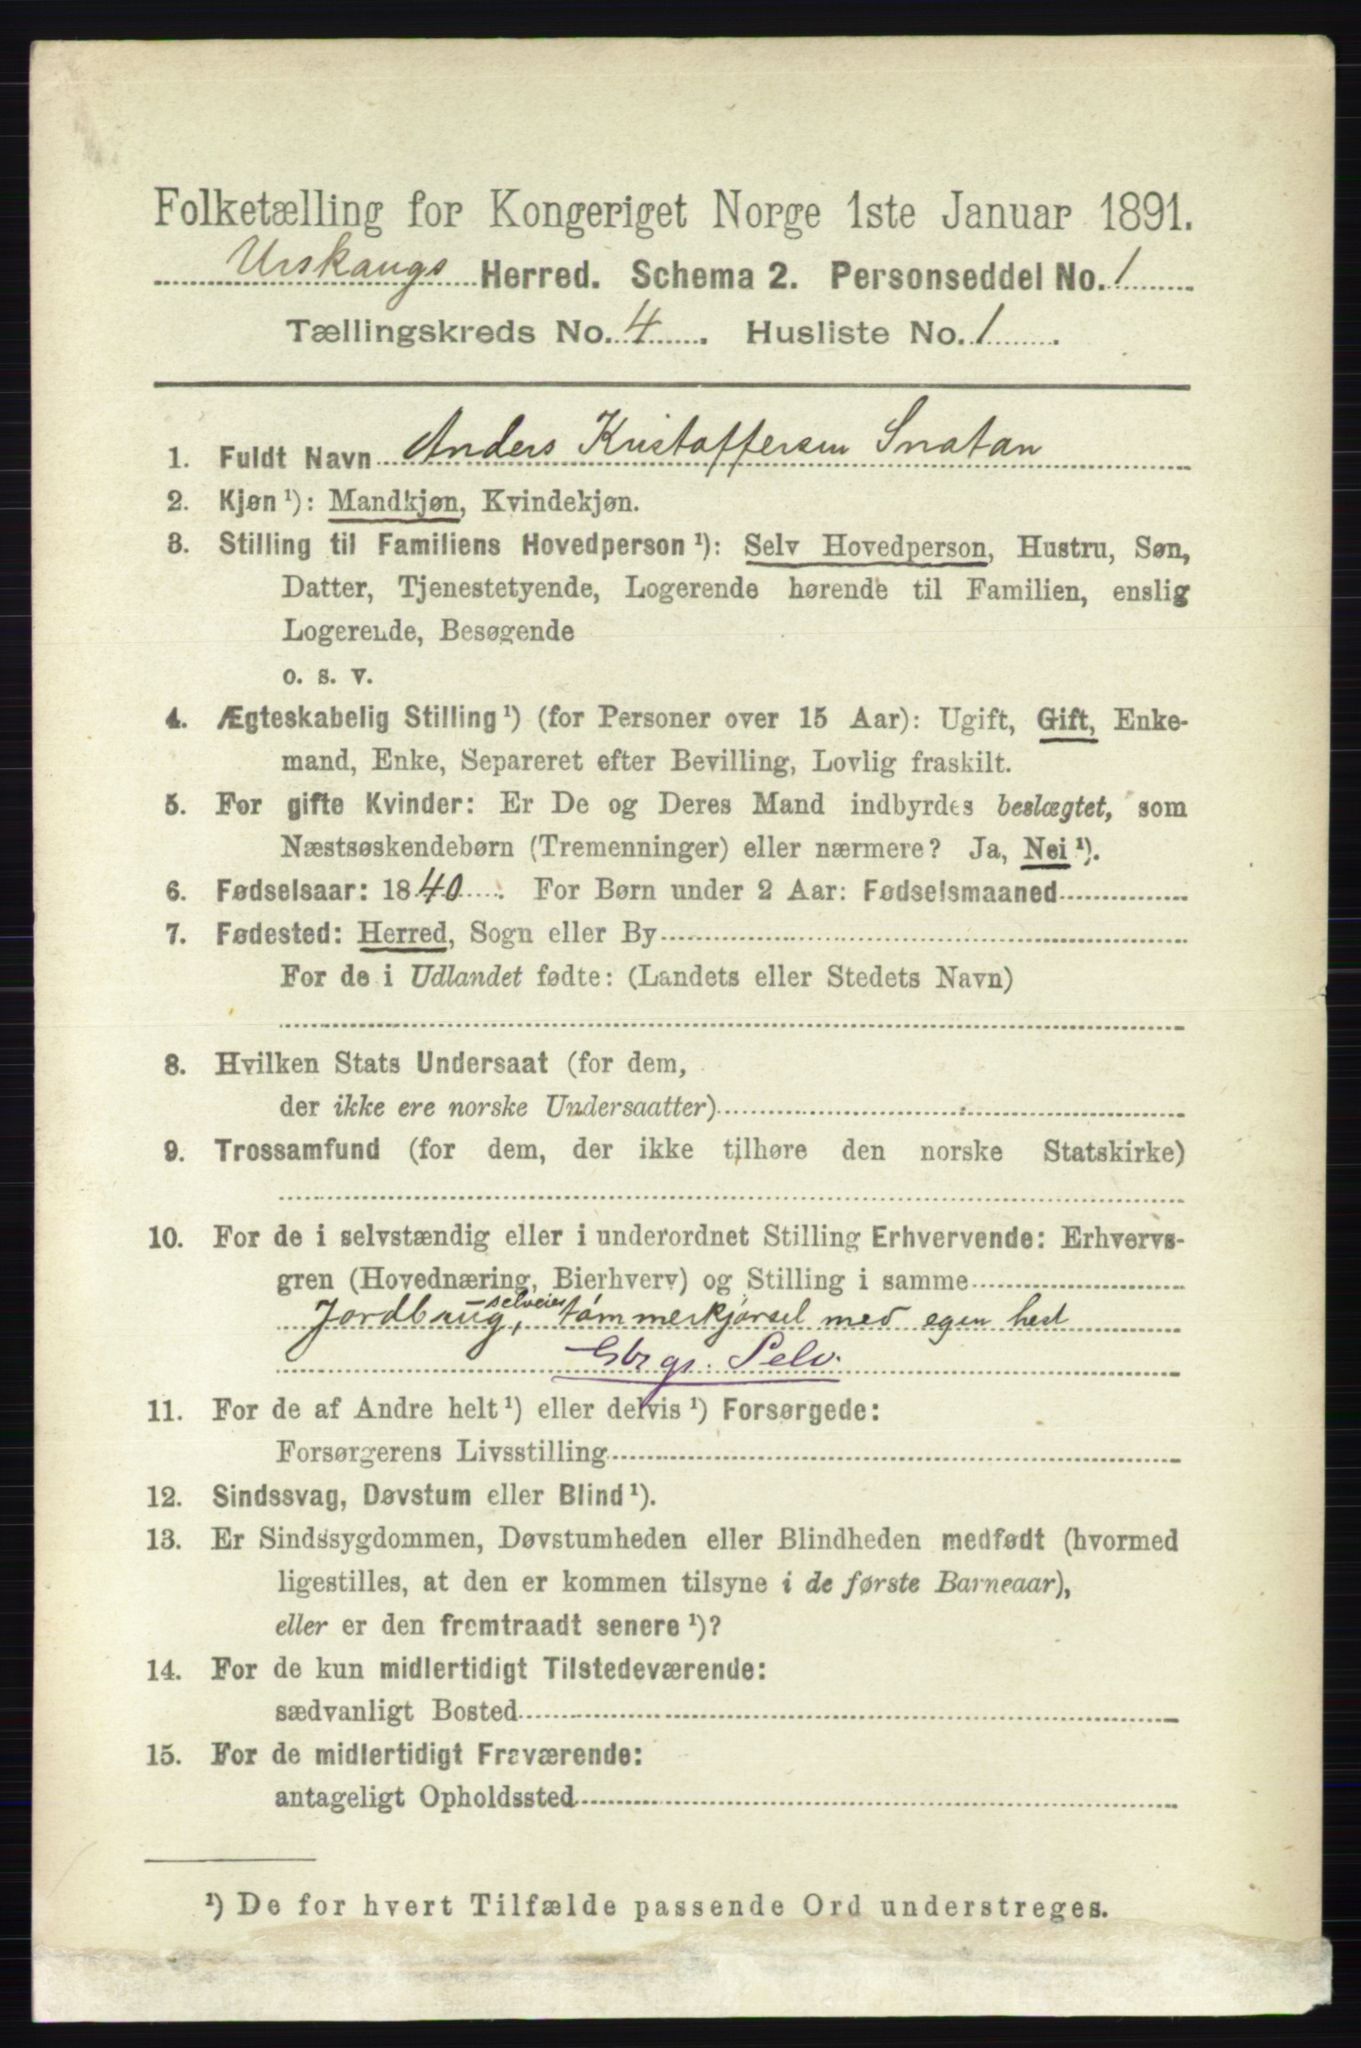 Folketælling for Kongeriget Norge 1ste Januar 1891.
Urskaugs Herred. Schema 2. Personseddel No. 1
Tællingskreds No. 4. Husliste No. 1.
1. Fuldt Navn Anders Kristoffersen Snatan
2. Kjøn ¹): Mandkjøn, Kvindekjøn.
3. Stilling til Familiens Hovedperson ¹): Selv Hovedperson, Hustru, Søn,
Datter, Tjenestetyende, Logerende hørende til Familien, enslig
Logerende, Besøgende
o. s. v.
4. Ægteskabelig Stilling ¹) (for Personer over 15 Aar): Ugift, Gift, Enke-
mand, Enke, Separeret efter Bevilling, Lovlig fraskilt.
5. For gifte Kvinder: Er De og Deres Mand indbyrdes beslægtet, som
Næstsøskendebørn (Tremenninger) eller nærmere? Ja, Nei ¹).
6. Fødselsaar: 1840. For Børn under 2 Aar: Fødselsmaaned
7. Fødested: Herred, Sogn eller By
For de i Udlandet fødte: (Landets eller Stedets Navn)
8. Hvilken Stats Undersaat (for dem,
der ikke ere norske Undersaatter)
9. Trossamfund (for dem, der ikke tilhøre den norske Statskirke)
10. For de i selvstændig eller i underordnet Stilling Erhvervende: Erhvervs-
gren (Hovednæring, Bierhverv) og Stilling i samme
selveier
Jordbrug, tømmerkjørsel med egen hest
Gbrgr. Selv.
11. For de af Andre helt ¹) eller delvis ¹) Forsørgede:
Forsørgerens Livsstilling
12. Sindssvag, Døvstum eller Blind ¹).
13. Er Sindssygdommen, Døvstumheden eller Blindheden medfødt (hvormed
ligestilles, at den er kommen tilsyne i de første Barneaar),
eller er den fremtraadt senere ¹)?
14. For de kun midlertidigt Tilstedeværende:
sædvanligt Bosted
15. For de midlertidigt Fraværende:
antageligt Opholdssted
¹) De for hvert Tilfælde passende Ord understreges.